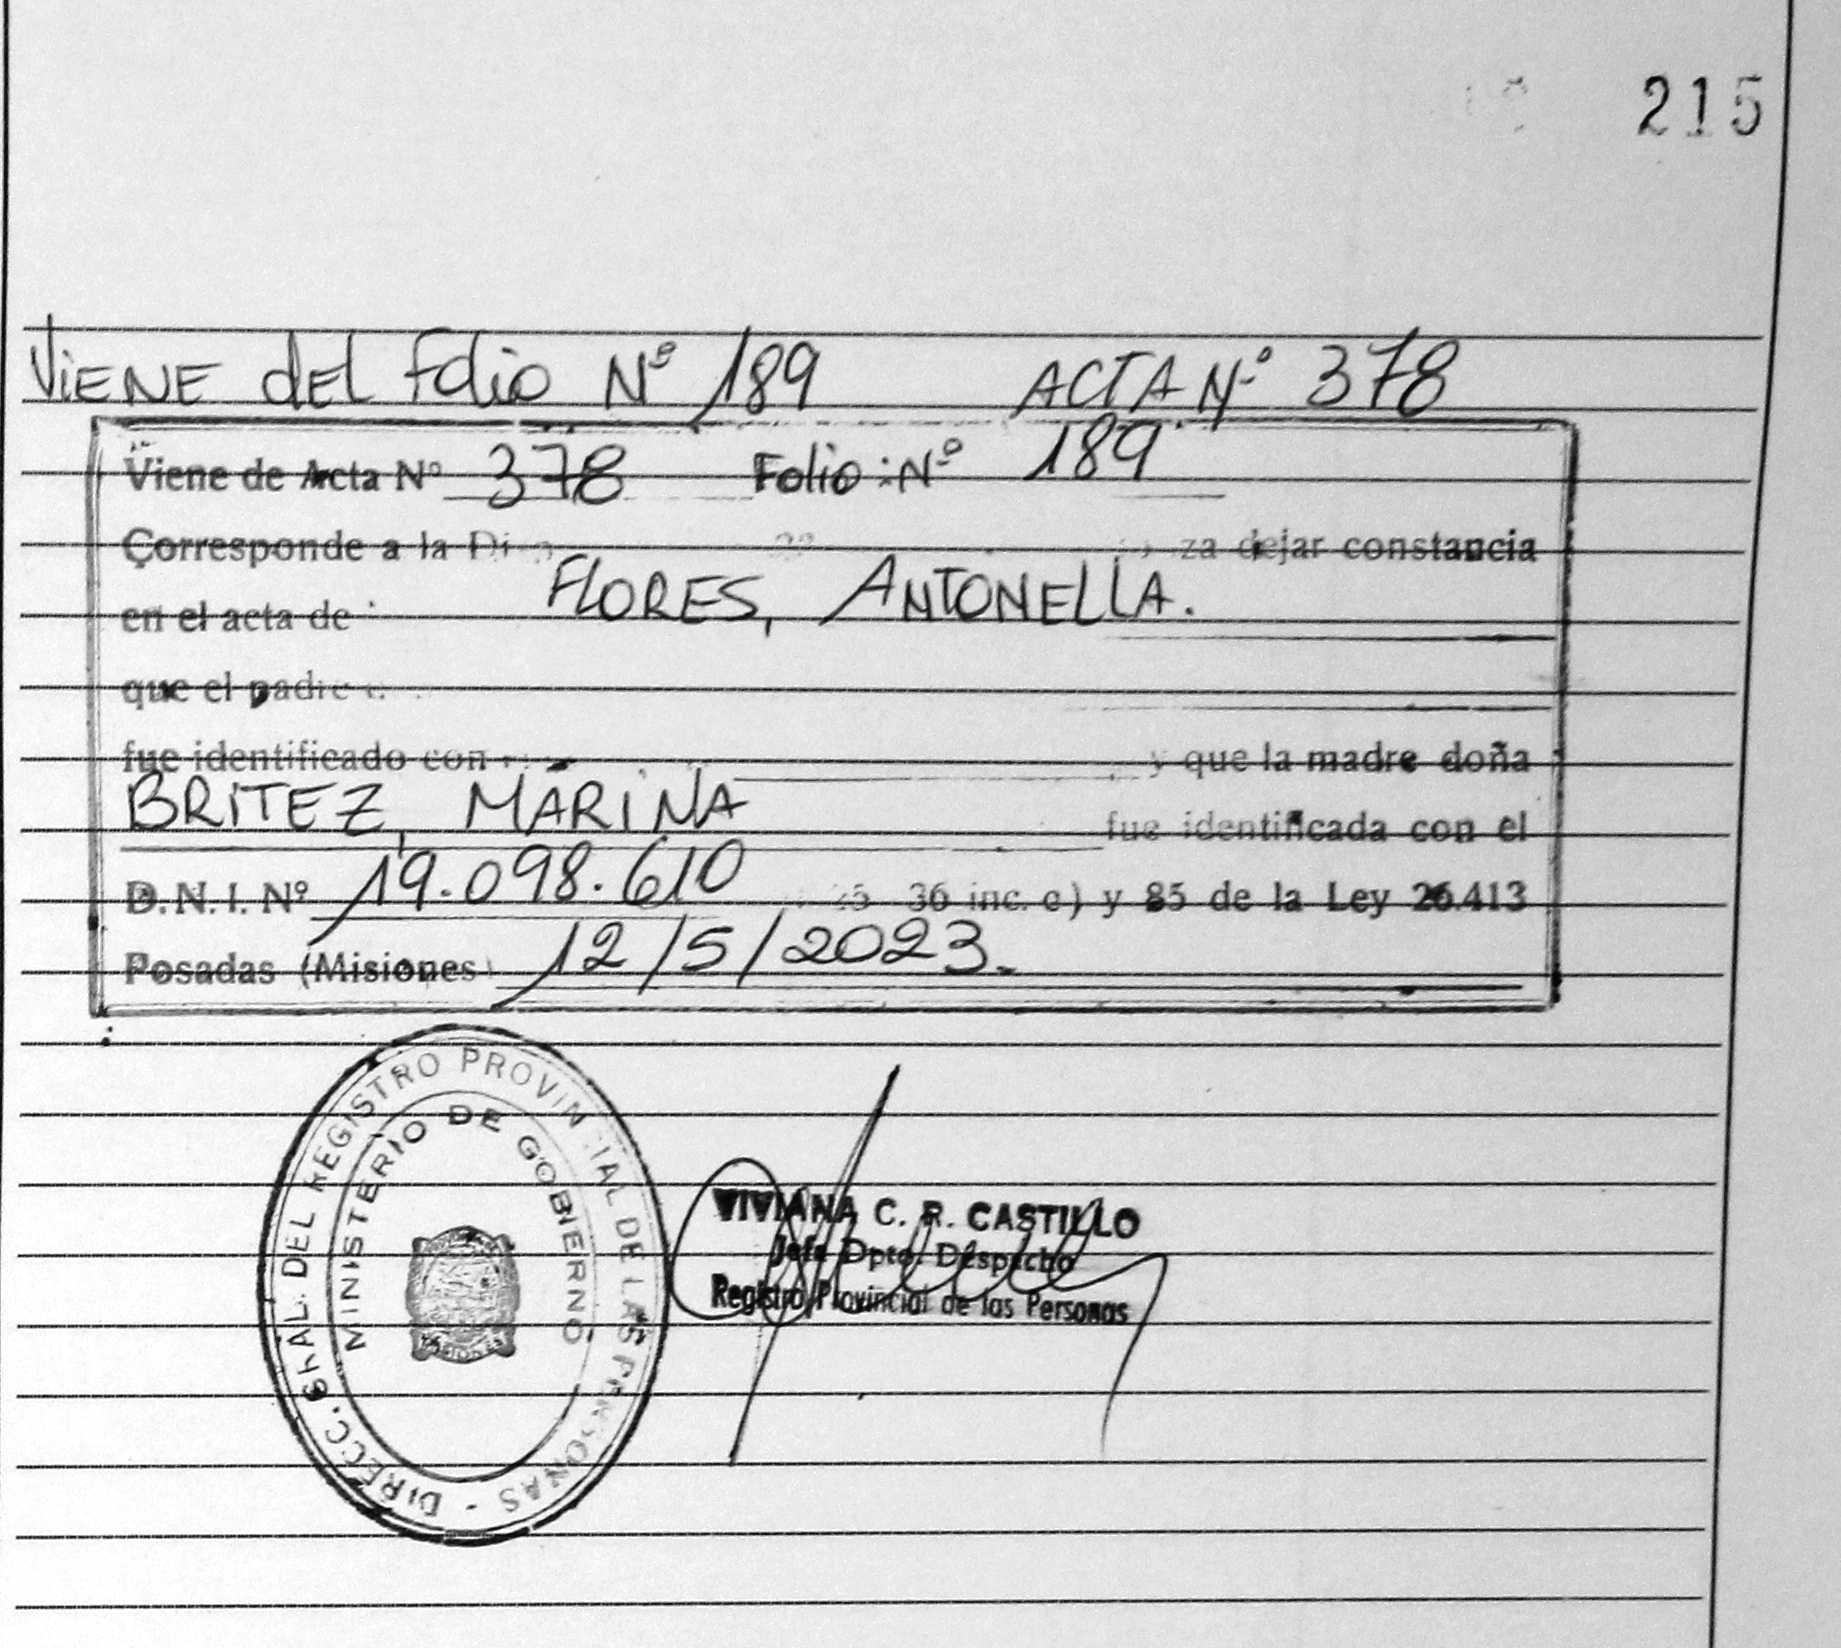 215
ViENE dEL Folio Nº 189 ACTA Nº 378
Viene de Acta Nº 378 Folio Nº 189
Corresponde a la dejar constancia
en el acta de FLORES, ANTONELLA.
que el padre
fue identificado con y que la madre doña
BRITEZ, MARINA fue identificada con el
D.N.I. Nº 19.098.610 36 inc. c) y 85 de la Ley 26.413
Posadas (Misiones) 12/5/2023.
DIRECC. GRAL. DEL REGISTRO PROVINCIAL DE LAS PERSONAS -
MINISTERIO DE GOBIERNO
MISIONES
VIVIANA C. R. CASTILLO
Jefe Dpto. Despacho
Registro Provincial de las Personas